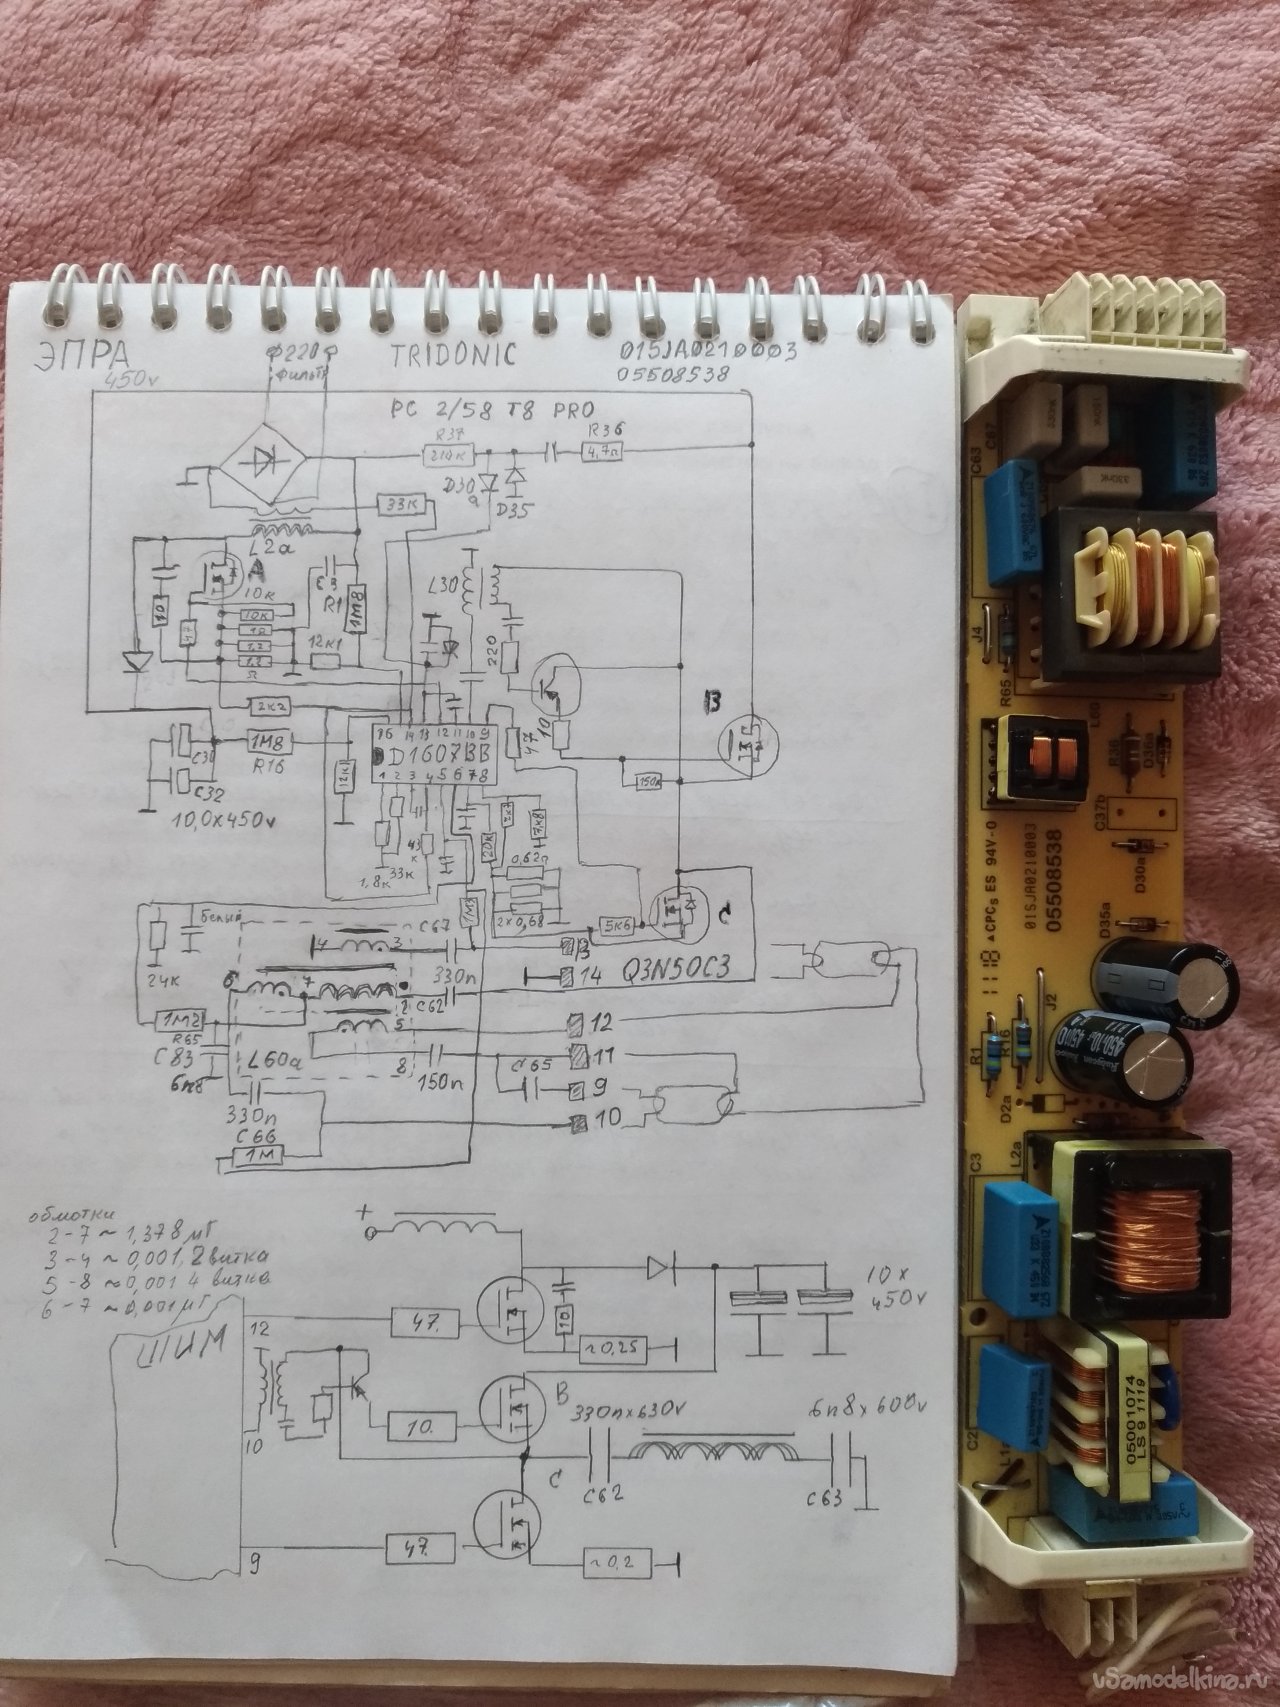 ЭПРА
Ф220Ф
фильтр
TRIDONIC
015JA0210003
450v
05508538
PC 2/58 T8 PRO
R37
R36
4,7Ω
D30
a
D35
33K
L2a
A
L30
10K
10K
C3
R1
1M8
10
47
12K1
220
2K2
B
16 14 13 12 11 10 9
D1607BB
1 2 3 4 5 6 7 8
47
10
150K
C30
1M8
R16
C32
12K
10,0x450v
43
K
33K
1,8K
20K
0,62Ω
2x0,68
1M3
5K6
C
Белый
C67
4 3
330n
13
14
Q3N50C3
24K
6 7 2
C62
1M2
R65
5
12
C83
L60a
8
150n
C65
11
6n8
9
330n
10
C66
1M
обмотки
2-7 ~ 1,378 мГ
3-4 ~ 0,001, 2 витка
5-8 ~ 0,001 4 витка
6-7 ~ 0,001 мГ
+
ШИМ
12
47.
10
~0,25
10x
450v
10
10.
B
330nx630v
6n8x600v
C
C62
C63
9
47.
~0,2
C63
C67
330nK
J4
R65
L60
R36
D36a
C37b
CPCs ES 94V-0
015JA0210003
05508538
D30a
D35a
1118
J2
R1
R16
450v
Rubycon
D2a
C3
L2a
C2
L1a
05001074
LS 9 1119
vSamodelkina.ru